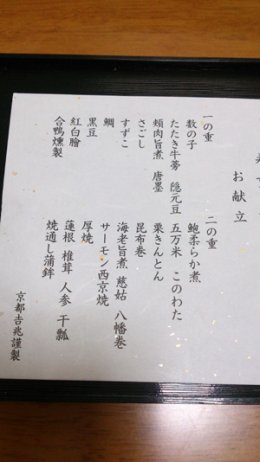 お献立
一の重
数の子
たたき牛蒡 隠元豆
頬肉旨煮 唐墨
さごし
すずこ
鯛
黒豆
紅白膾
合鴨燻製
二の重
鮑柔らか煮
五万米 このわた
栗きんとん
昆布巻
海老旨煮 慈姑 八幡巻
サーモン西京焼
厚焼
蓮根 椎茸 人参 干瓢
焼通し蒲鉾
京都吉兆謹製